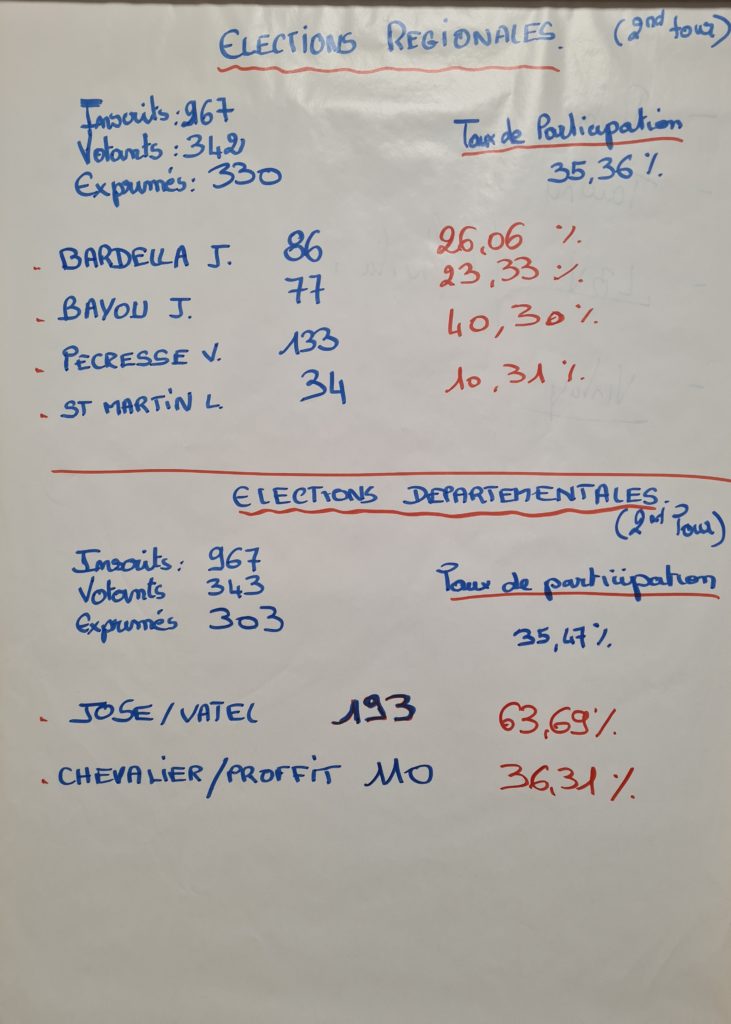 ELECTIONS REGIONALES. (2nd tour)
Inscrits : 967
Votants : 342
Exprimés : 330
Taux de Participation
35,36 %.
. BARDELLA J. 86 26,06 %.
. BAYOU J. 77 23,33 %.
. PECRESSE V. 133 40,30 %.
. ST MARTIN L. 34 10,31 %.
ELECTIONS DEPARTEMENTALES.
(2nd Tour)
Inscrits : 967
Votants 343
Exprimés 303
Taux de participation
35,47 %.
. JOSE/VATEL 193 63,69 %.
. CHEVALIER/PROFFIT 110 36,31 %.